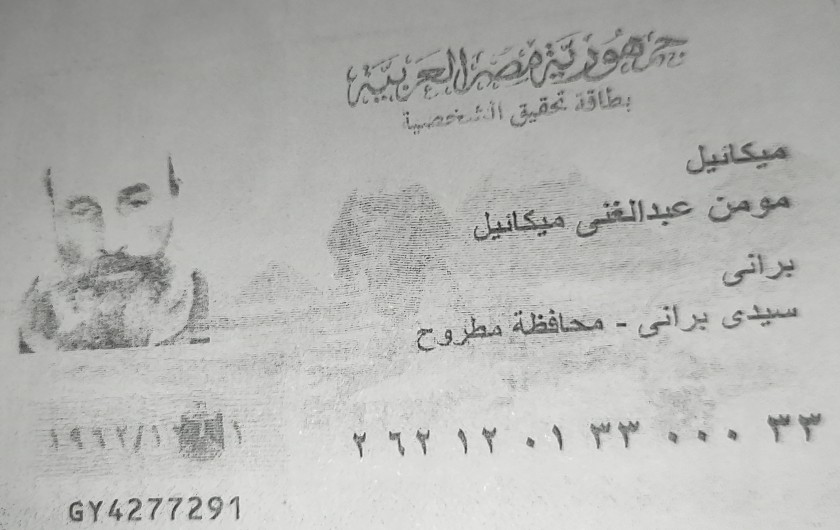 جمهورية مصر العربية
بطاقة تحقيق الشخصية
ميكائيل
مومن عبدالغنى ميكائيل
برانى
سيدى برانى - محافظة مطروح
٢ ٦٢ ١٢ ٠١ ٣٣ ٠٠٠ ٣٣
GY4277291